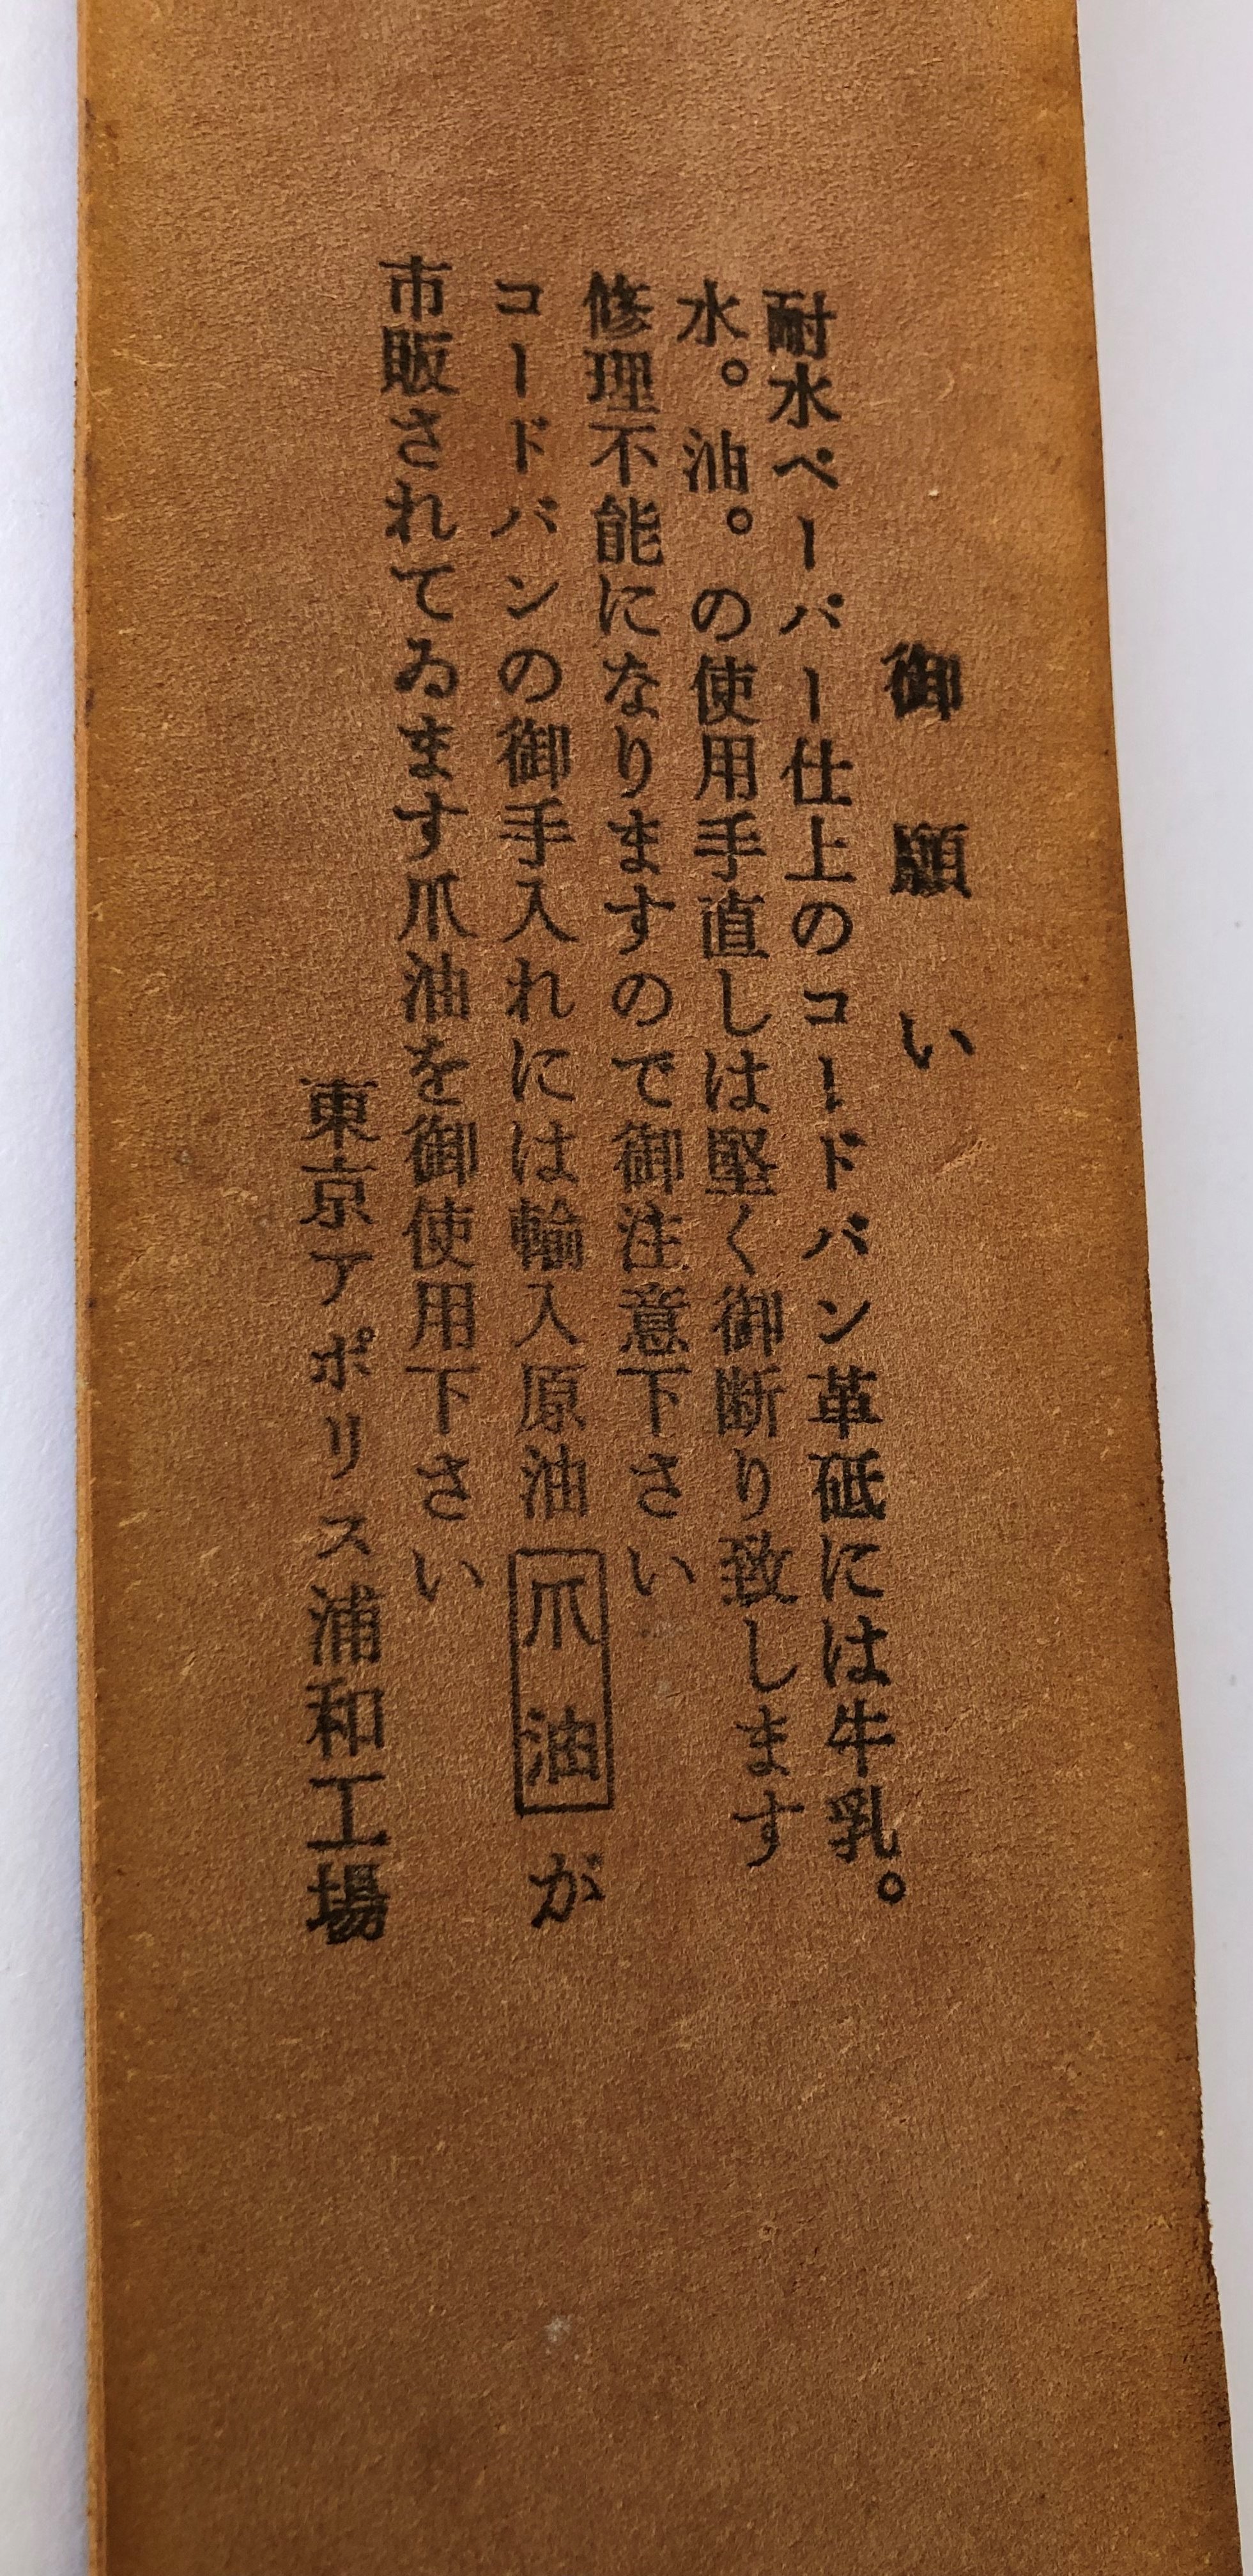 御願い
耐水ペーパー仕上のコードバン革砥には牛乳。
水。油。の使用手直しは堅く御断り致します
修理不能になりますので御注意下さい
コードバンの御手入れには輸入原油爪油が
市販されてゐます爪油を御使用下さい
東京アポリス浦和工場